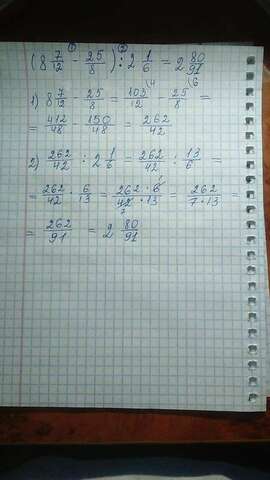 (8 7/12 - 25/8) : 2 1/6 = 2 80/91
1) 8 7/12 - 25/8 = 103/12 - 25/8 =
= 412/48 - 150/48 = 262/42
2) 262/42 : 2 1/6 = 262/42 : 13/6 =
= 262/42 · 6/13 = 262 · 6/42 · 13 = 262/7 · 13 =
= 262/91 = 2 80/91